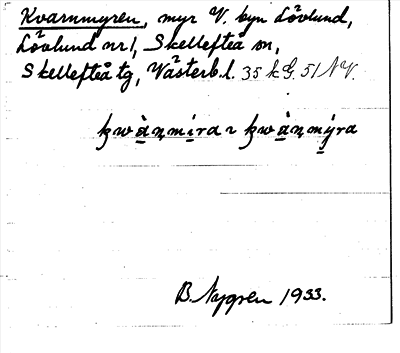 Kvarnmyren, myr V. byn Lövlund,
Lövlund nr 1, Skellefteå sn,
Skellefteå tg, Västerb. l. 35 k G. 51 NV.
B. Nygren 1933.